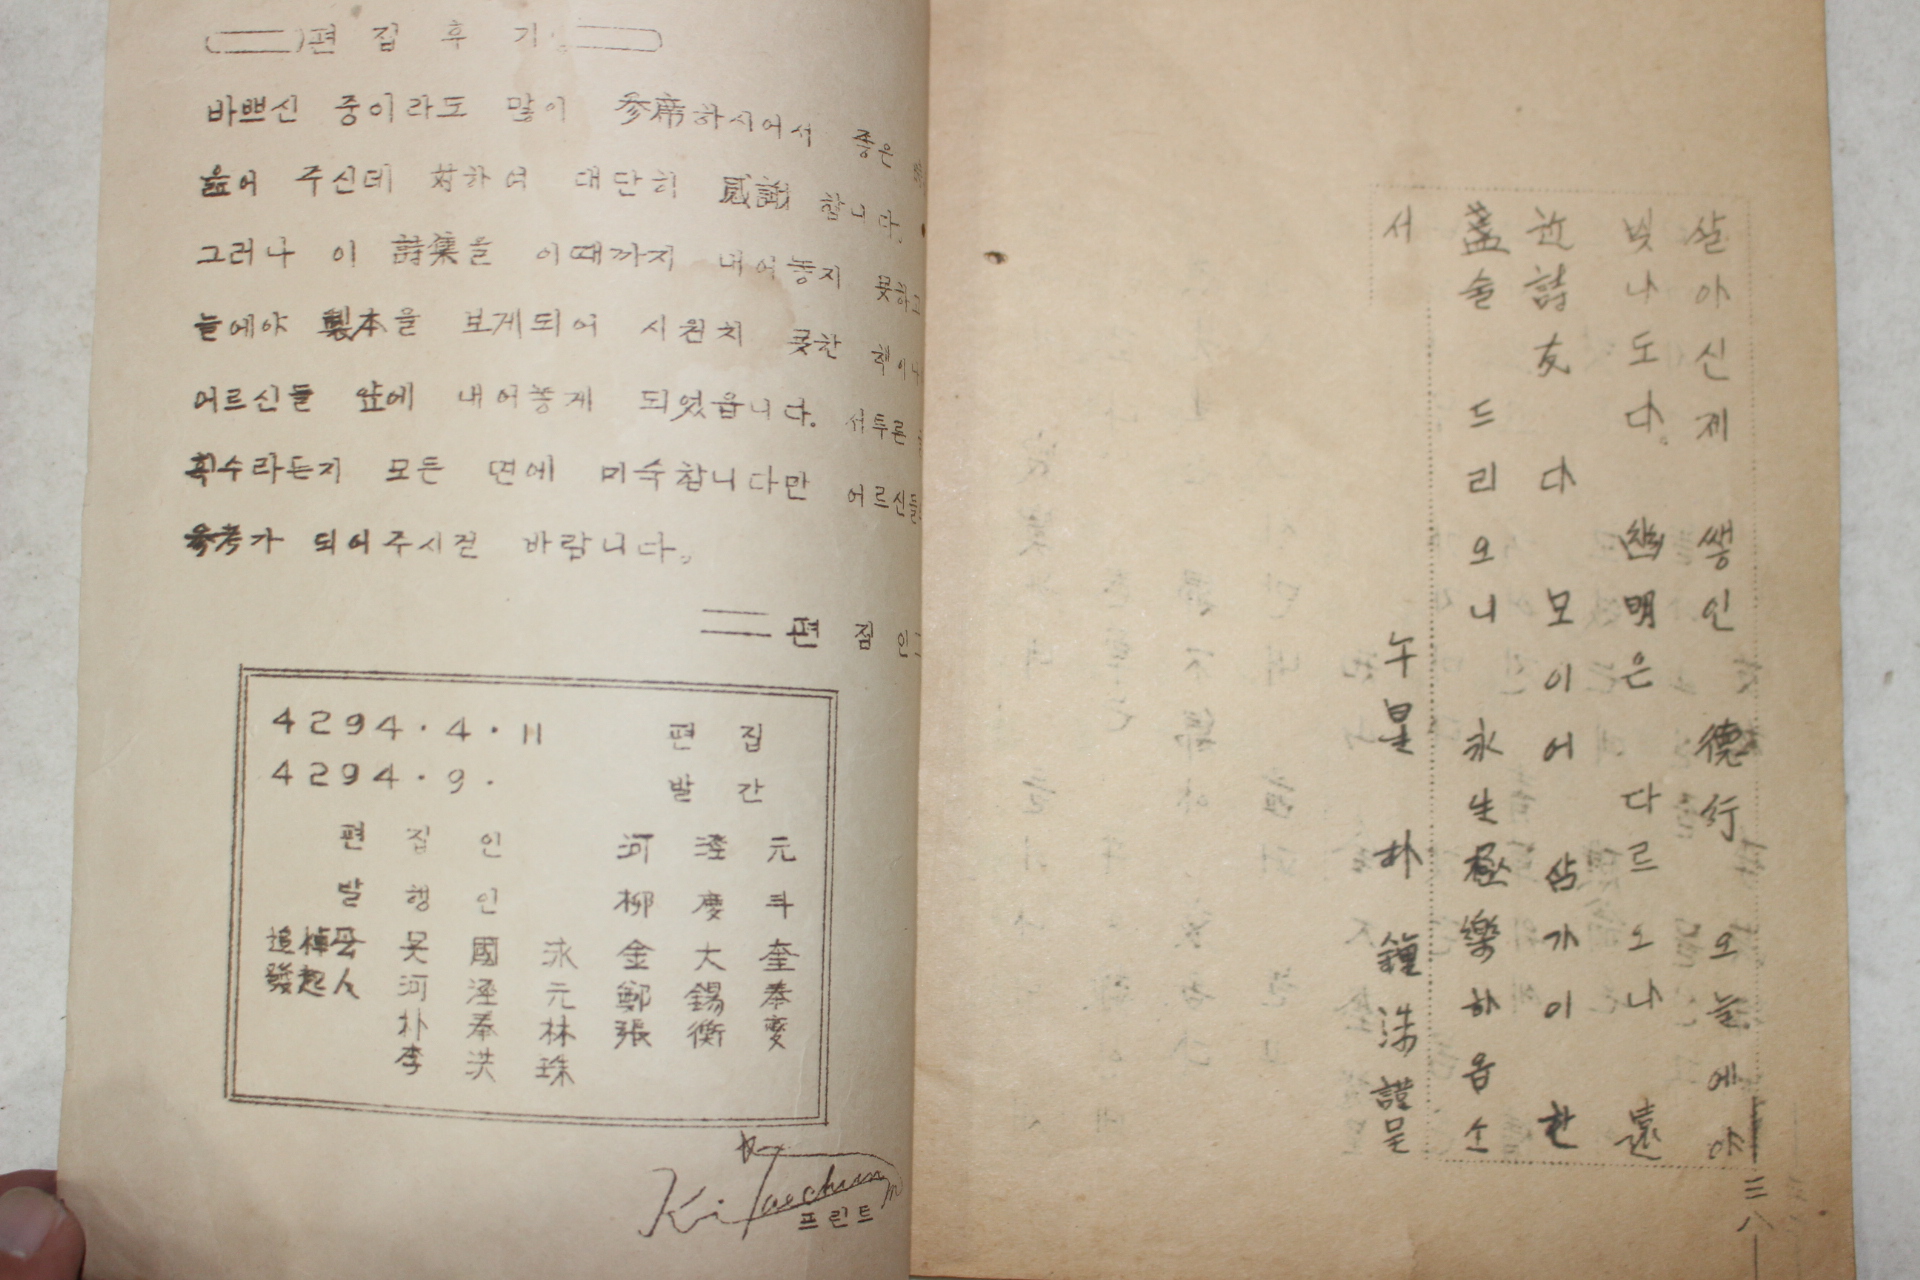 편집후기
바쁘신 중이라도 많이 參席하시어서 좋은
읊어 주신데 対하여 대단히 感謝합니다.
그러나 이 詩集을 이때까지 내어놓지 못하고
늘에야 製本을 보게되어 시원치 못한 책이나
어르신들 앞에 내어놓게 되었읍니다. 서투른
획수라든지 모든 면에 미숙합니다만 어르신들
參考가 되어주시길 바랍니다.
편집인
4294·4·11 편집
4294·9· 발간
편집인 河涇元
발행인 柳慶斗
追悼會 吳國泳 金大奎
發起人 河涇元 鄭錫奉
朴奉林 張衡燮
李洪珠
Ki Taechun
프린트
살아신제 쌩인 德行 오늘에야
빗나도다. 幽明은 다르오나 遠
近詩友 다 모이어 삼가이 한
盞술 드리오니 永生極樂하옵소
서
午星 朴鍾洙 謹呈
三八